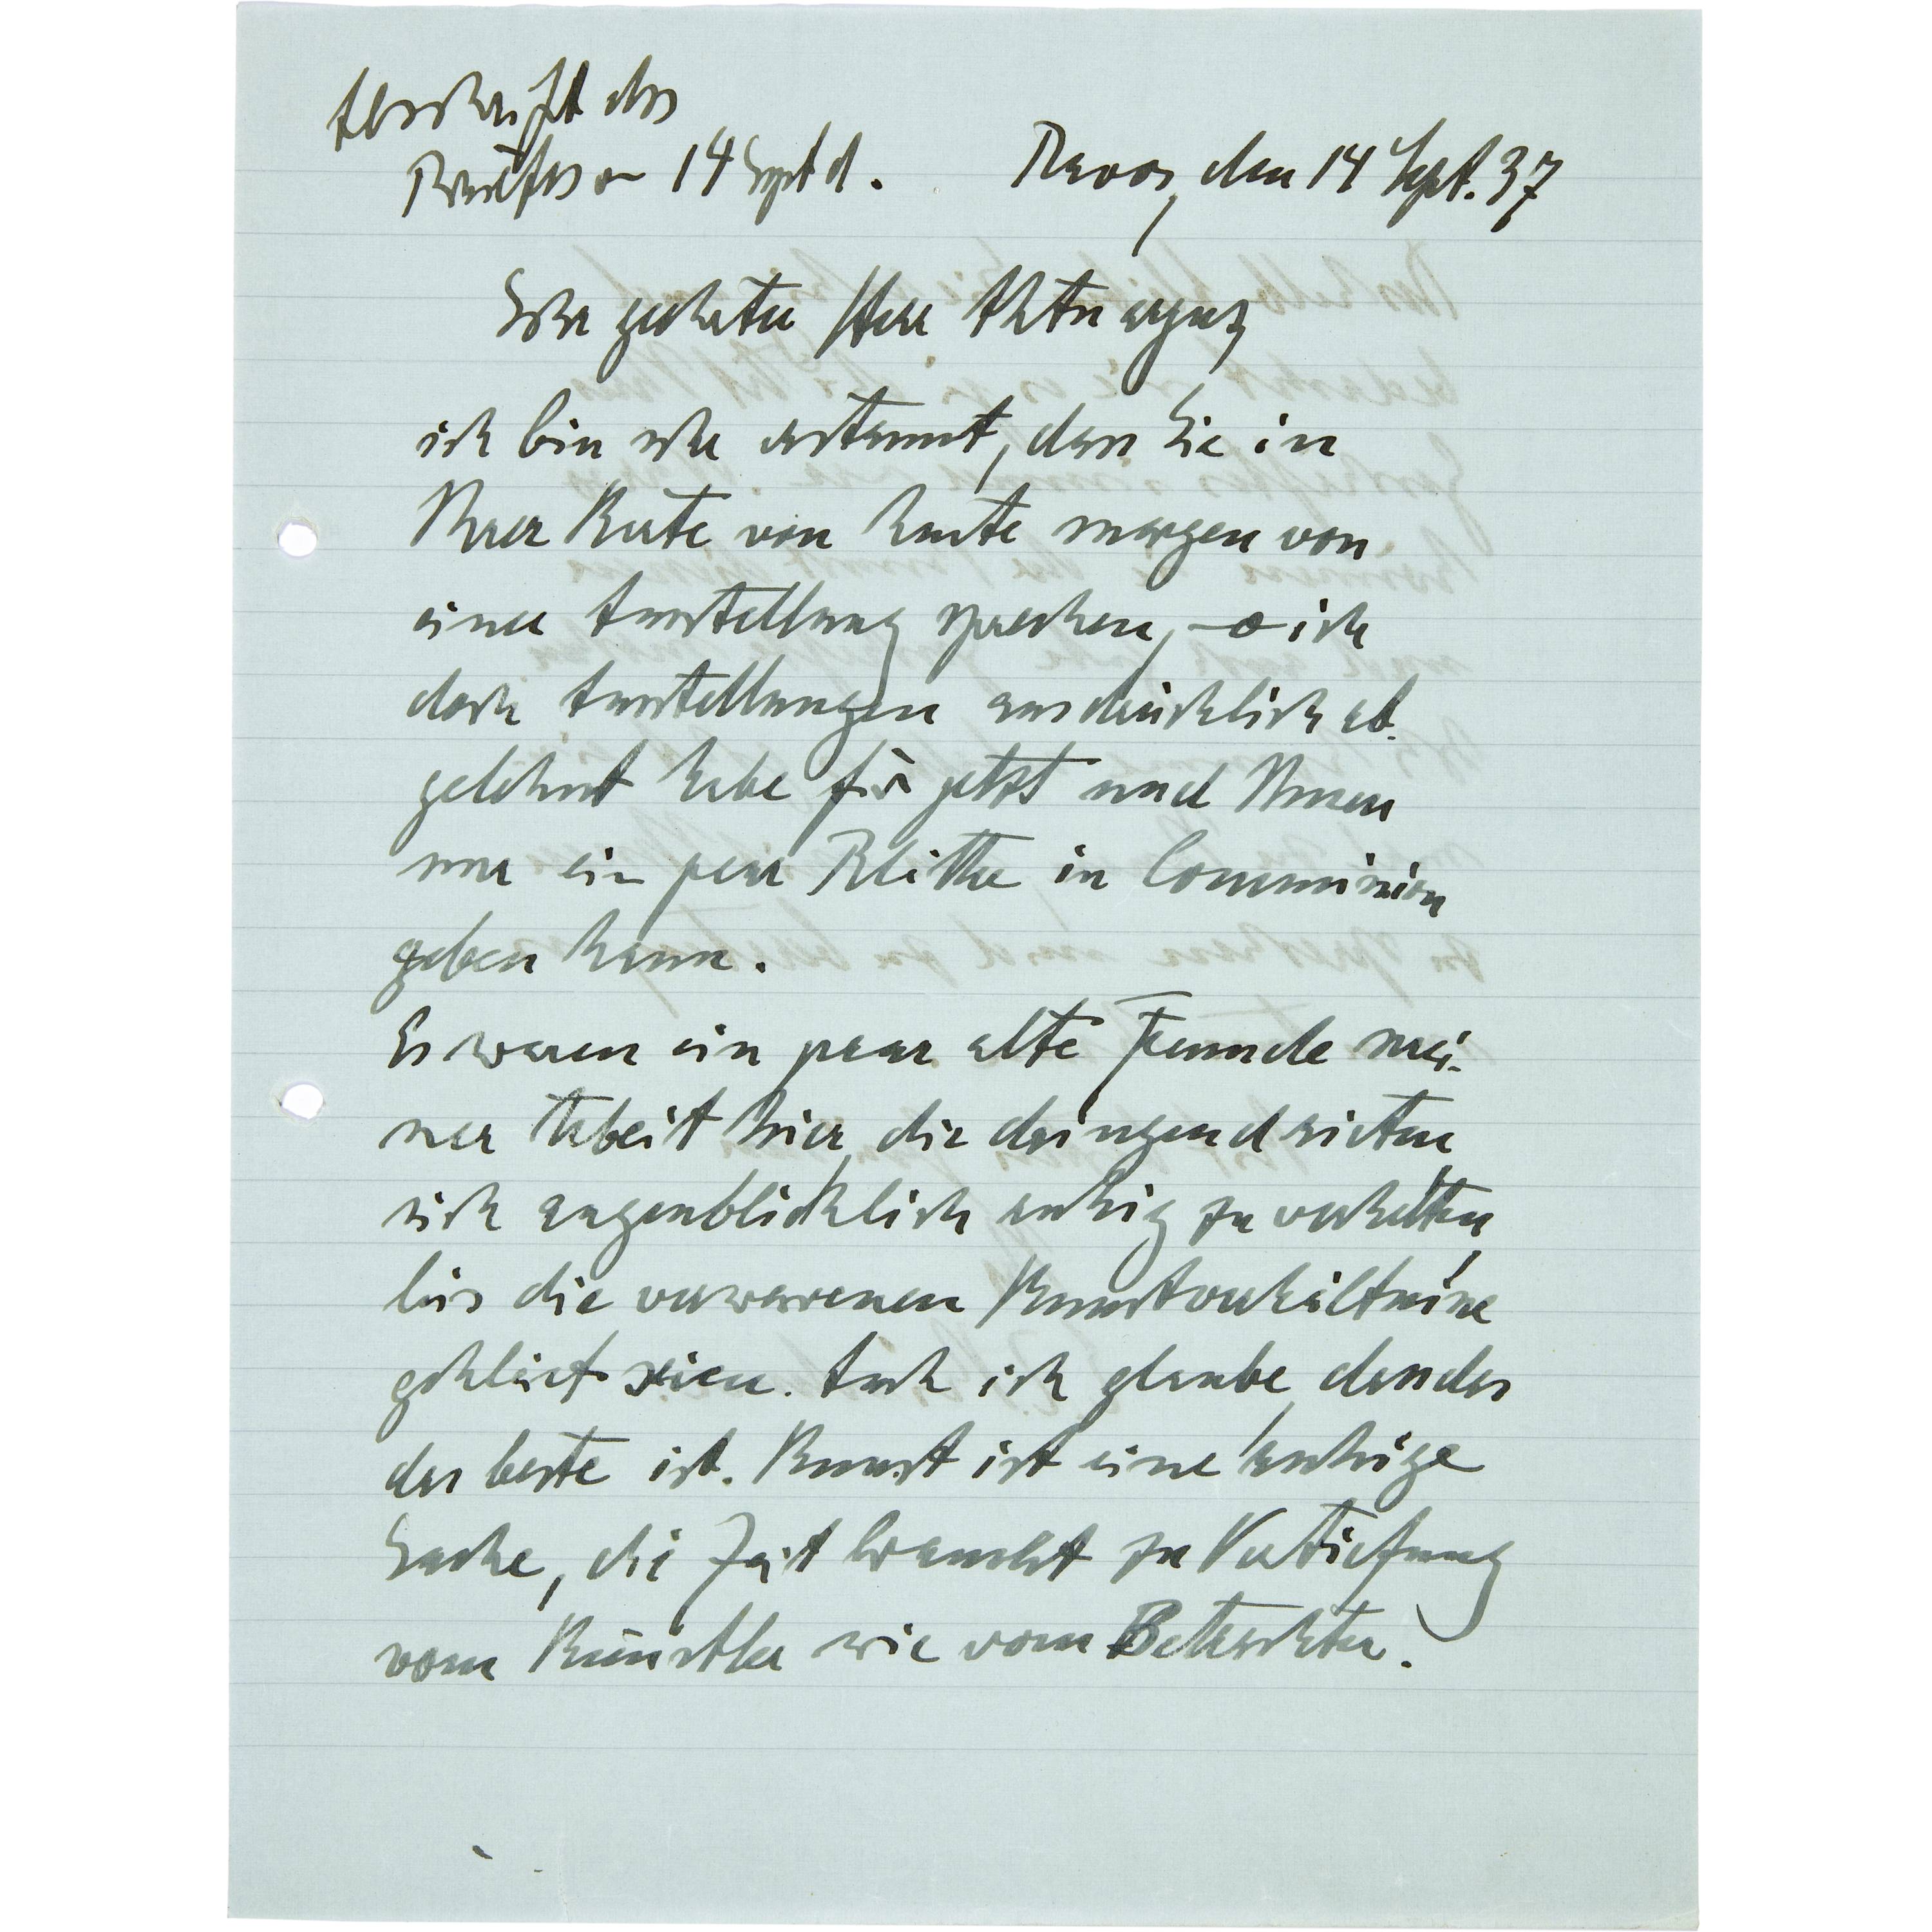 Abschrift des
Briefes v 14 Sept d.
Davos, den 14 Sept. 37
Sehr geehrter Herr
ich bin sehr erstaunt, dass Sie in
Ihrer Karte von heute morgen von
einer Ausstellung sprechen, o ich
doch Ausstellungen ausdrücklich ab-
gelehnt habe für jetzt und Ihnen
nur ein paar Blätter in Commission
geben kann.
Es waren ein paar alte Freunde mei-
ner Arbeit hier, die dringend rieten
sich augenblicklich ruhig zu verhalten,
bis die verworrenen Kunstverhältnisse
geklärt seien. Auch ich glaube, dass das
das beste ist. Kunst ist eine ruhige
Sache, die Zeit braucht zu Vertiefung
vom Künstler wie vom Betrachter.